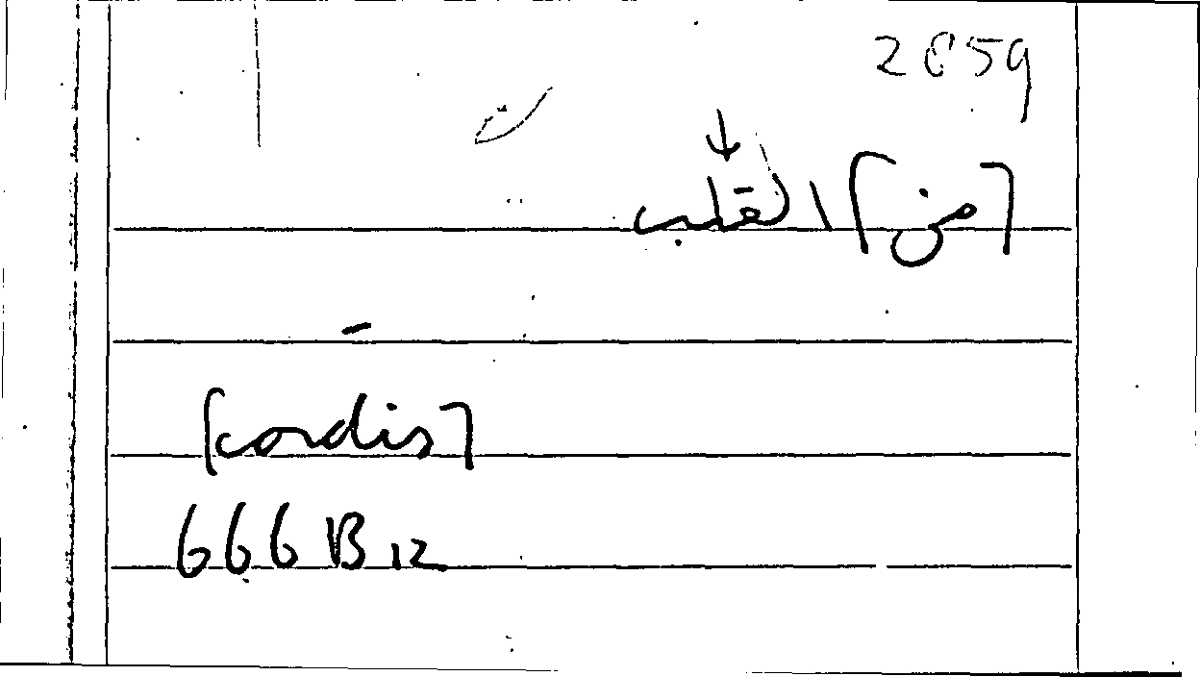 2859
↓
[من] القلب
–
[cordis]
666 B 12